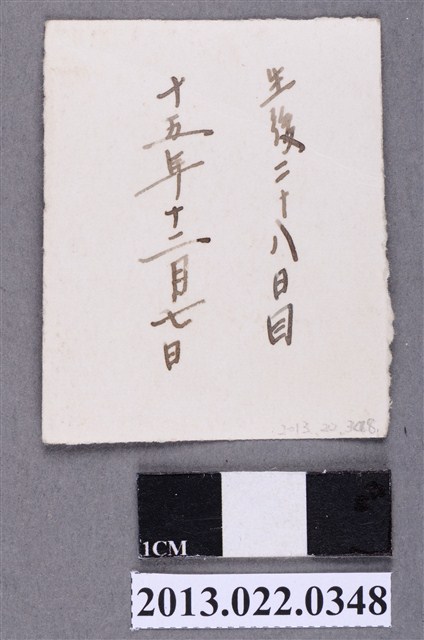 生後二十八日目
十五年十二月七日
2013.20.348
1CM
2013.022.0348